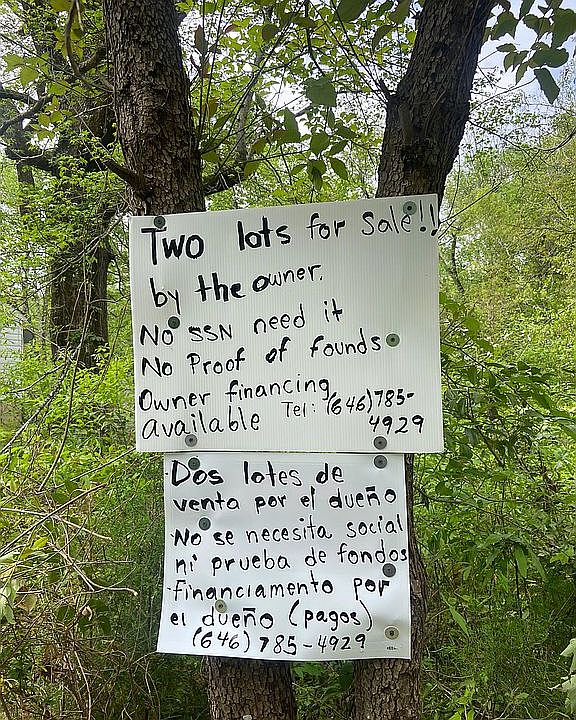 Two lots for sale!!
by the owner.
No SSN need it
No Proof of founds
Owner financing
available Tel: (646)785-
4929
Dos lotes de
venta por el dueño
No se necesita social
ni prueba de fondos
financiamento por
el dueño (pagos)
(646) 785-4929